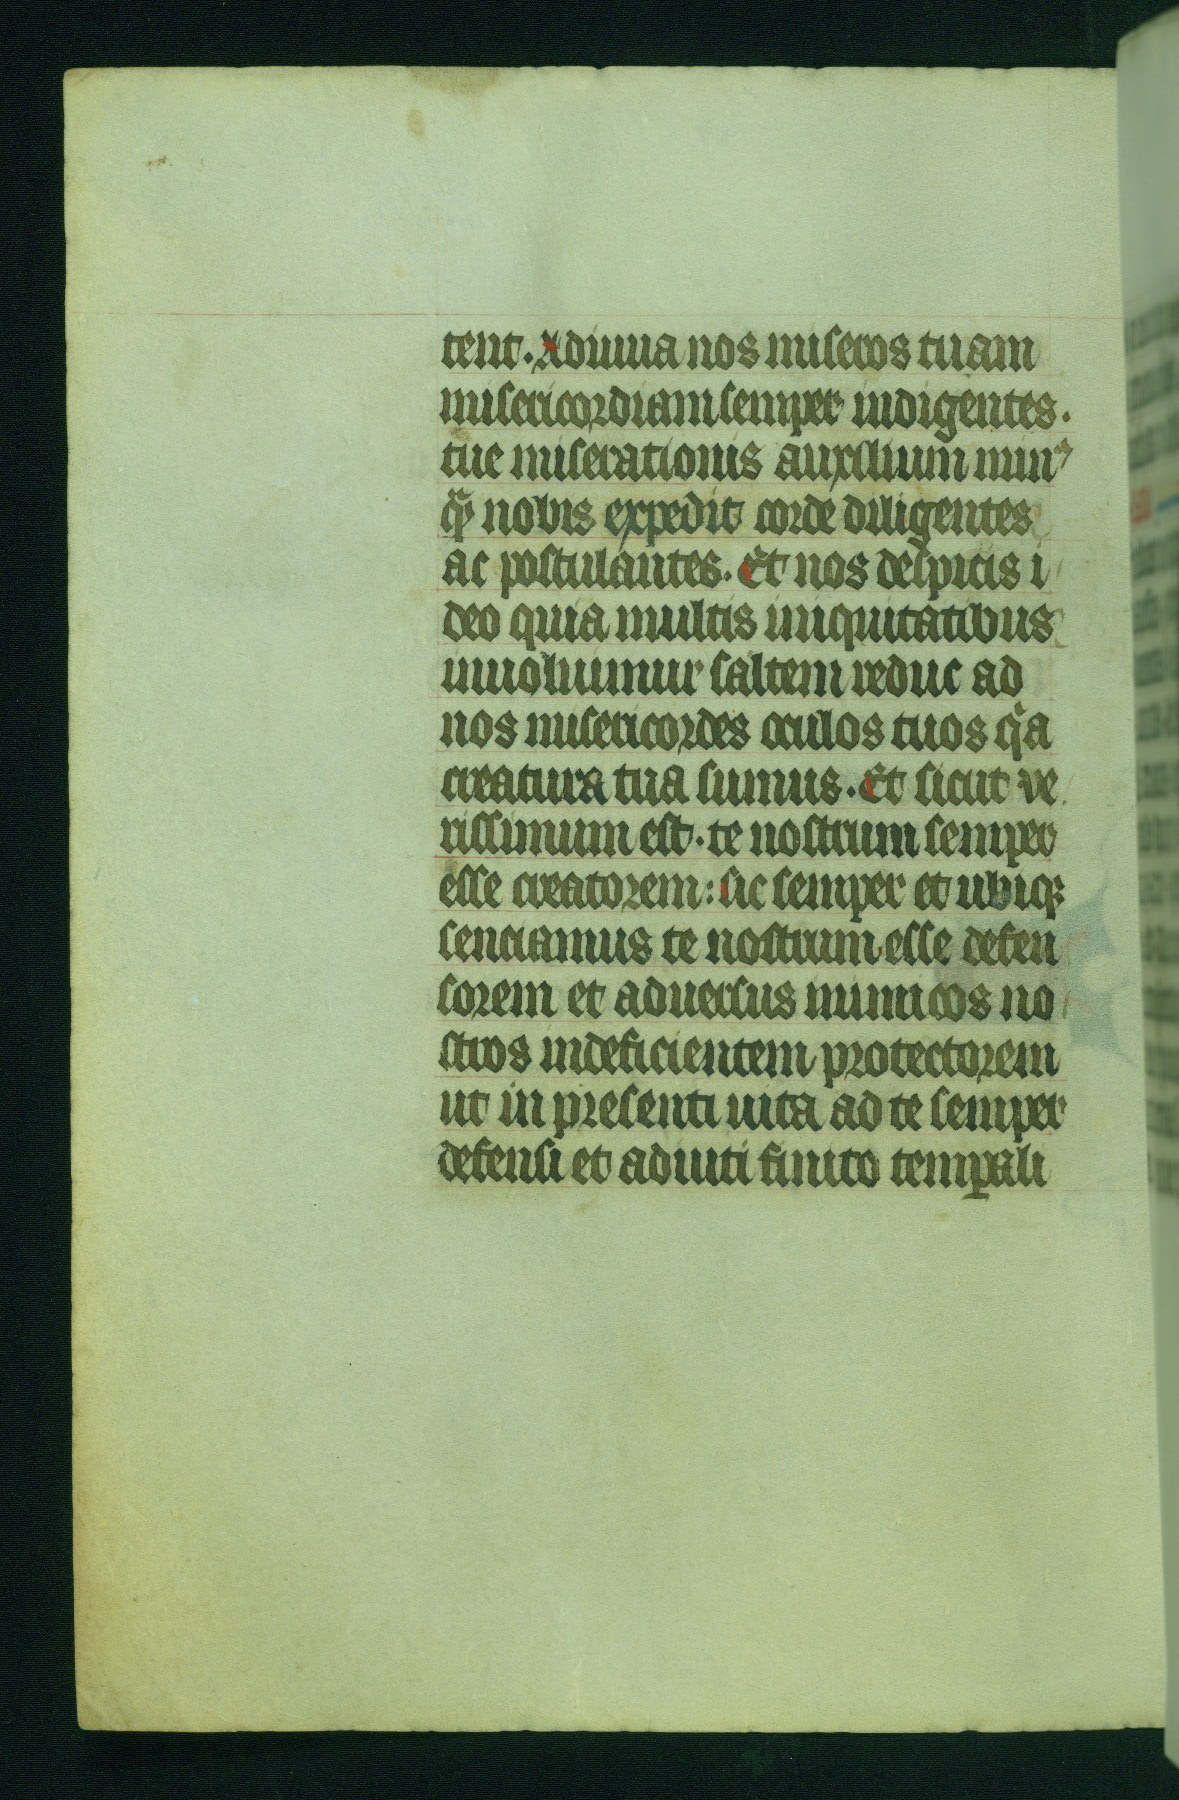 tent. Adiuua nos miseros tuam
misericordiam semper indigentes.
tue miserationis auxilium minꝰ
qᷓ nobis expedit corde diligentes
ac postulantes. Et nos despicis i
deo quia multis iniquitatibus
inuoluimur saltem reduc ad
nos misericordes oculos tuos qͥa
creatura tua sumus. Et sicut ve
rissimum est. te nostrum semper
esse creatorem: sic semper et ubiqꝫ
senciamus te nostrum esse defen
sorem et aduersus inimicos no
stros indeficientem protectorem
ut in presenti uita ad te semper
defensi et adiuti finito temꝑali